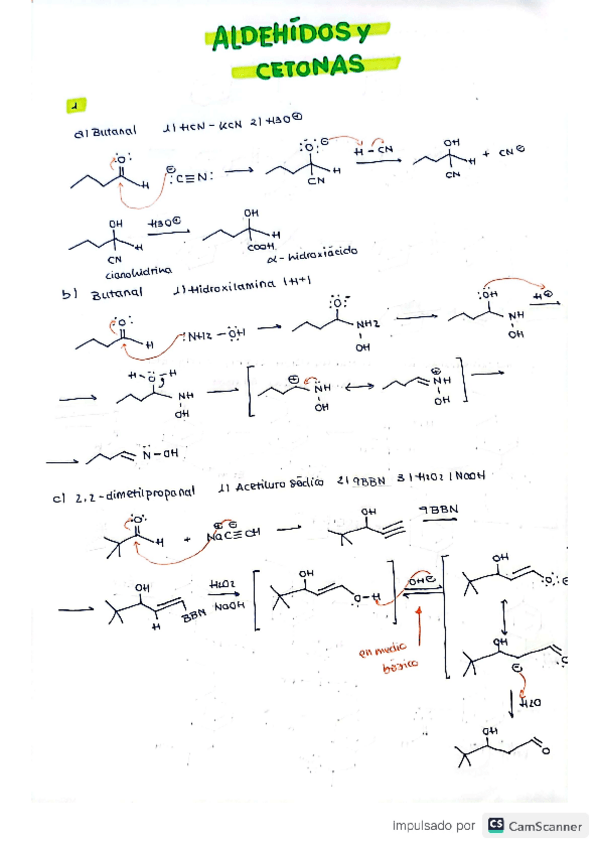 ALDEHÍDOS y
CETONAS
1
a) Butanal 1) HCN - KCN 2) H3O⊕
:O: H :C≡N: :O: H CN H-CN OH H CN + CN⊖
OH H CN H3O⊕ OH H COOH
cianohidrina α-hidroxiácido
b) Butanal 1) Hidroxilamina (H+)
:O: H :NH2-OH :O: NH2 OH :OH NH OH H⊕
H-O-H NH OH ⊕ NH OH ⊕ NH OH
N-OH
c) 2,2-dimetilpropanal 1) Acetiluro sódico 2) 9BBN 3) H2O2 / NaOH
:O: H + NaC≡CH OH 9BBN
OH H BBN H2O2 NaOH OH O-H OH⊖ OH :O: ⊖
en medio
básico
OH ⊖ O
H2O
OH O
Impulsado por CS CamScanner